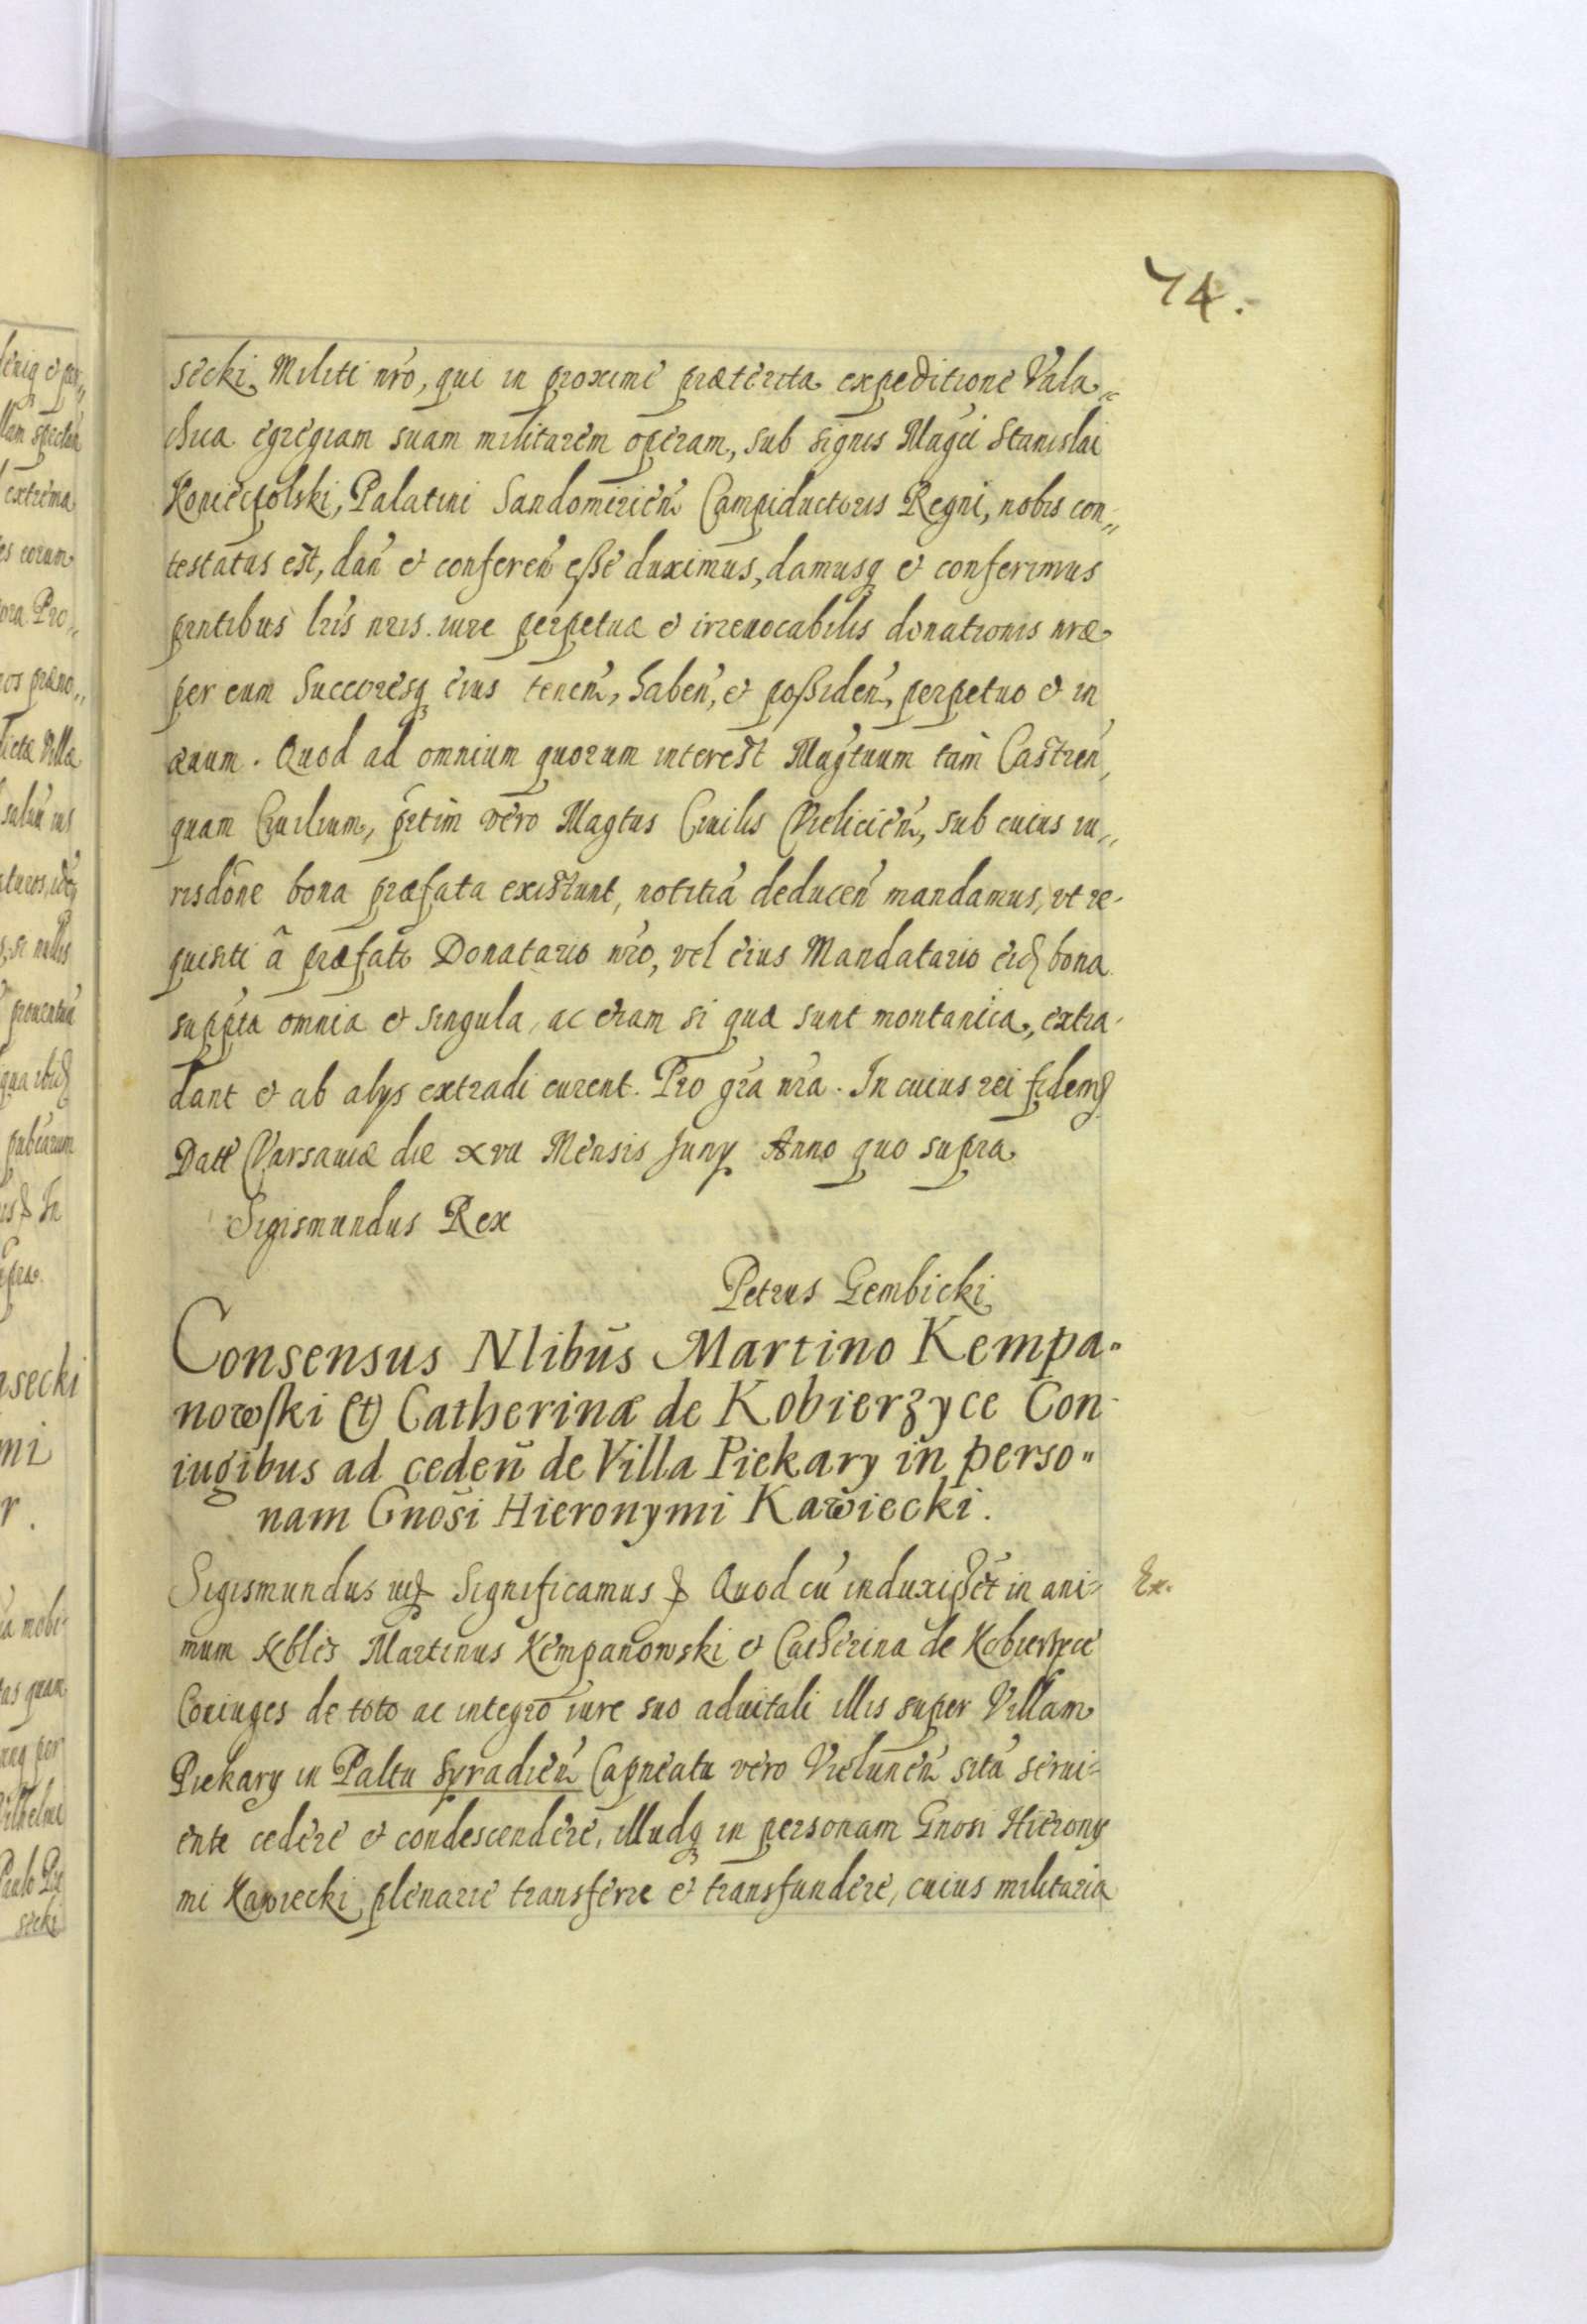 74.
siecki Militi nro, qui in proxime præterita expeditione Vala„
chica egregiam suam militarem operam, sub signis Magci Stanislai
Koniecpolski, Palatini Sandomirien̄ Campiductoris Regni, nobis con„
testatus est, dan̄ et conferen̄ eße duximus, damusq et conferimus
pntibus lris nris iure perpetuæ et irreuocabilis donationis nræ
per eum Succoresq eius tenen̄, haben̄, et poßiden̄, perpetuo et in
æuum. Quod ad omnium quorum interest Magtuum tam Castren̄,
quam Ciuilium, prtim vero Magtus Ciuilis Vielicien̄, sub cuius iu„
risdōne bona præfata existunt, notitiā deducen̄ mandamus, vt re-
quisiti ā præfato Donatario nro, vel eius Mandatario eid bona
suppta omnia et singula, ac etiam si quæ sunt montanica, extra-
dant et ab alys extradi curent. Pro gra nra. In cuius rei fidem
Datt Varsauiæ die xvii Mensis Juny Anno quo supra
Sigismundus Rex
Petrus Gembicki
Consensus Nlibūs Martino Kempa„
nowski et Catherinæ de Kobierzyce Con-
iugibus ad ceden̄ de Villa Piekary in perso„
nam Gnosi Hieronymi Kawiecki.
Sigismundus Significamus Quod cū induxißet in ani=
mum Nbles Martinus Kempanowski et Catherina de Kobierzyce
Coniuges de toto ac integro iure suo aduitali illis super Villam
Piekary in Paltu Syradien̄ Capneatu vero Vielunen̄ sitā serui=
ente cedere et condescendere, illudq in personam Gnosi Hierony
mi Kawiecki plenarie transferre et transfundere, cuius militaria
Ex.